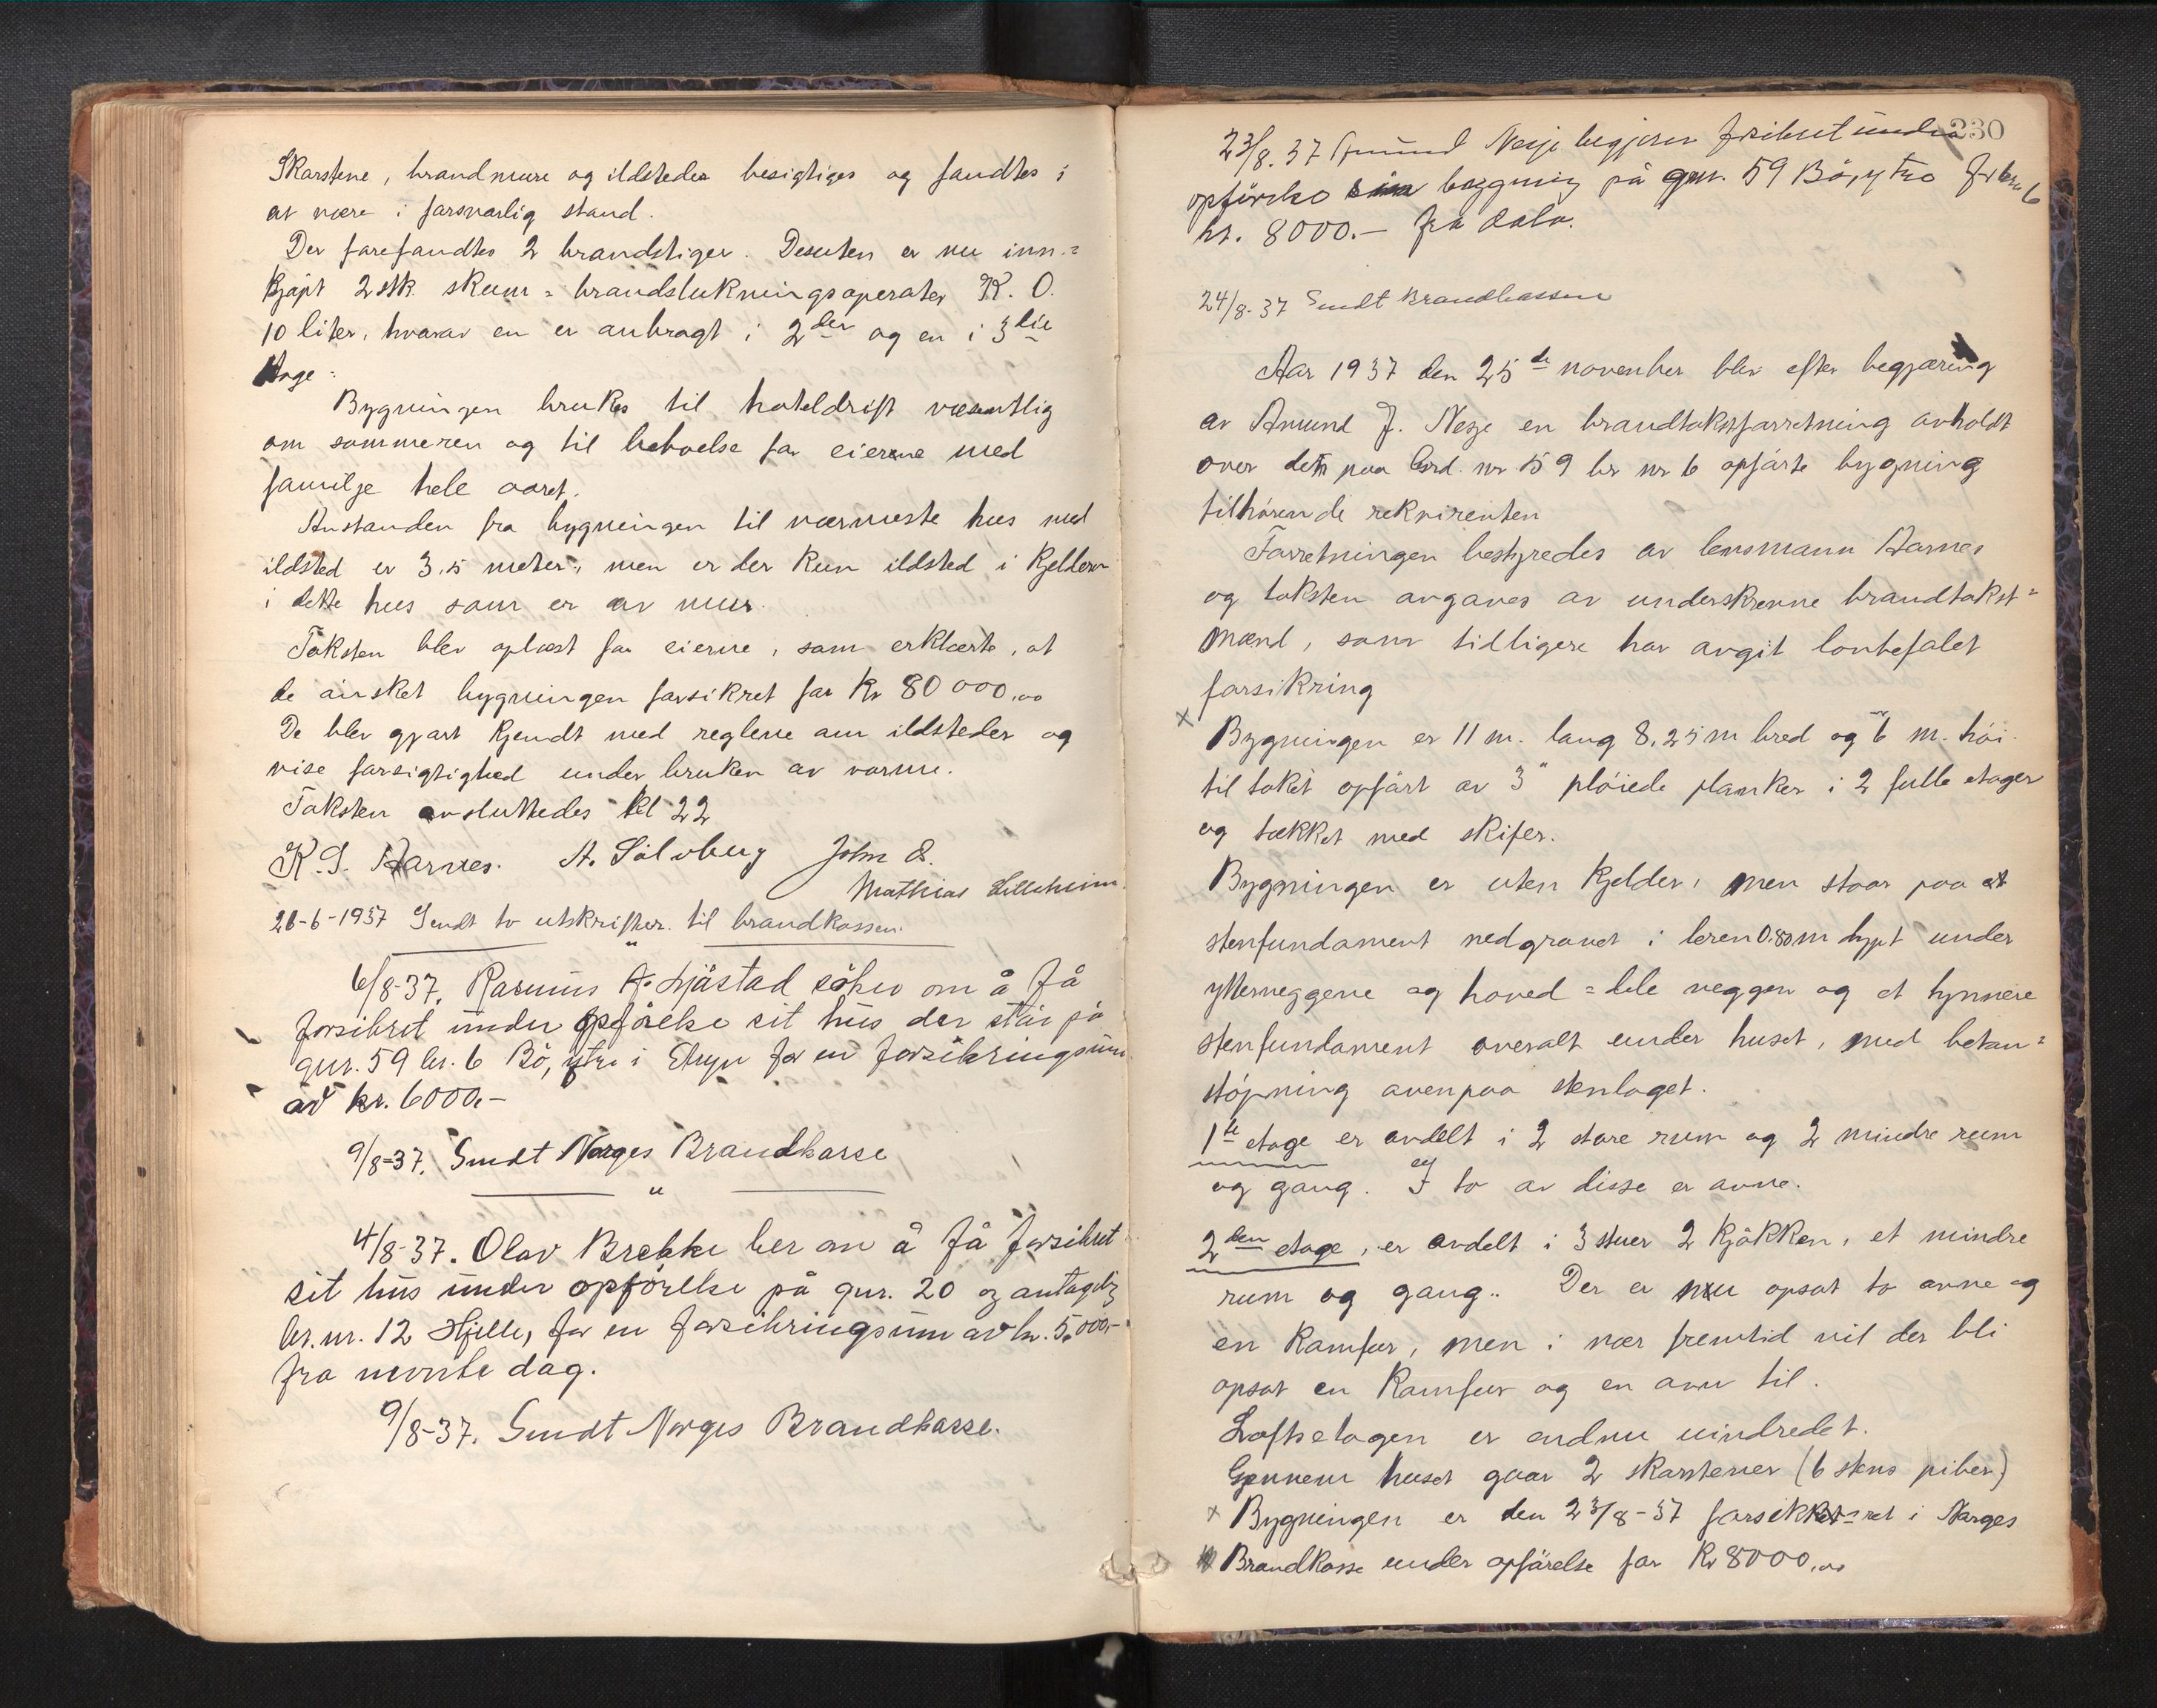 Skorstene, brandmure og ildsteder besigtiges og fandtes i
at være i forsvarlig stand.
Der forefandtes 2 brandstiger. Desuten er nu inn-=
kjøpt 2 stk skum = brandslukningsaperater K. O.
10 liter, hvorav en er anbragt i 2den og en i 3die
Etage.
Bygningen brukes til hoteldrift væsentlig
om sommeren og til beboelse for eierne med
familje hele aaret.
Avstanden fra bygningen til nærmeste hus med
ildsted er 3,5 meter, men er der kun ildsted i kjelderen
i dette hus som er av mur.
Taksten blev oplæst for eierne, som erklærte, at
de ønsket bygningen forsikret for Kr 80 000,00
De blev gjort kjendt med reglene om ildsteder og
vise forsigtighed under bruken av varme.
Taksten avsluttedes kl 22
K. S. Aarnes. A. Sølvberg John O.
Mathias Lilleheim
26-6-1937 Sendt to utskrifter til brandkassen.
"
6/8-37. Rasmus A. Sjåstad søker om å få
forsikret under opførelse sit hus der står på
gnr. 59 br. 6 Bö, ytre i Stryn for en forsikringsum
av kr. 6000.-
9/8-37. Sendt Norges Brandkasse
"
4/8-37. Olav Brekke ber om å få forsikret
sit hus under opförelse på gnr. 20 og antagelig
br. nr. 12 Hjelle, for en forsikringsum av kr. 5.000.-
fra nevnte dag.
9/8-37. Sendt Norges Brandkasse.
230
23/8. 37 Amund Nesje begjærer forsikret under
opförelse sin bygning på gnr. 59 Bö, ytre for br. 6
kr. 8000.- fra dato.
24/8-37 Sendt Brandkassen
Aar 1937 den 25de november blev efter begjæring
av Amund J. Nesje en brandtakstforretning avholdt
over den paa Grd. nr 59 br nr 6 opførte bygning
tilhørende rekvirenten
Forretningen bestyredes av lensmann Aarnes
og taksten avgaves av underskrevne brandtakst=
mænd, som tidligere har avgit lovbefalet
forsikring
x
Bygningen er 11 m. lang 8,25 m bred og 6 m. høi
til taket opført av 3" pløiede planker i 2 fulle etager
og tækket med skifer.
Bygningen er uten kjelder, men staar paa et
stenfundament nedgravet i leren 0.80 m dypt under
ytterveggene og hoved = dele veggen og et tynnere
stenfundament overalt under huset, med betan=
støpning ovenpaa stenlaget.
1ste etage er avdelt i 2 store rum og 2 mindre rum
og gang. I to av disse er ovne.
2den etage, er avdelt i 3 stuer 2 kjøkken, et mindre
rum og gang. Der er nu opsat to ovne og
en Komfur, men i nær fremtid vil der bli
opsat en Komfur og en ovn til.
Loftsetagen er endnu uindredet.
Gjennem huset gaar 2 skorstener (6 stens piber)
x Bygningen er den 23/8-37 forsikret i Norges
Brandkasse under opførelse for Kr 8000,00